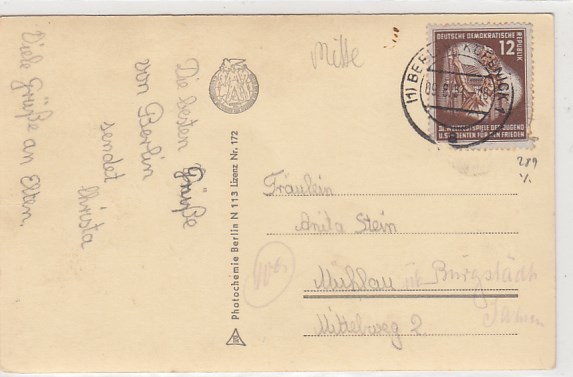 Mitte
Die besten Grüße
von Berlin
sendet
Christa
Viele Grüße an Eltern.
Photochemie Berlin N 113 Lizenz Nr. 172
DEUTSCHE DEMOKRATISCHE
REPUBLIK
12
III. WELTFESTSPIELE DER JUGEND
U. STUDENTEN FÜR DEN FRIEDEN
(1) BERLIN-KÖPENICK
289
Fräulein
Anita Stein
Mühlau üb. Burgstädt
Mittelweg 2.